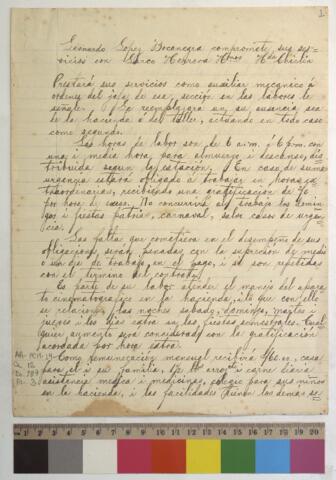 1
Leonardo Lopez Bocanegra compromete sus ser-
vicios con Larco Herrera Hnos Hda Chiclin
Prestará sus servicios como auxiliar mecánico á
ordenes del jefe de esa sección en las labores de
reemplazará en su ausencia sea
de la hacienda ó del taller, actuando en todo caso
como segundo.
Las horas de labor son de 6 a.m. á 6 p.m. con
una i media hora, para almuerzo i descanso, dis-
tribuida segun la estación. En caso de suma
urgencia estará obligado á trabajar en horas ex
traordinarias, recibiendo una gratificación de
por hora de exceso. No concurrirá al trabajo los domin
gos i fiestas patrias, carnaval, salvo casos de urgen
cia.
Las faltas que cometiera en el desempeño de sus
obligaciones, serán penadas con la supresión de medio
i un dia de trabajo en el pago, i si son repetidas
con el término del contrato.
Es parte de su labor atender el manejo del apara
to cinematografico en la hacienda, i lo que con ello
se relacione, las noches sabado, domingo, martes i
jueves i los dias extras en las fiestas semestrales. Cual
quier aumento será considerado con la gratificación
acordada por hora extra.
Como remuneración mensual recibirá casa
para él i su familia, arroz i carne diaria
asistencia médica i medicinas, colegio para sus niños
en la hacienda, i las facilidades tienen los demas se-
1 2 3 4 5 6 7 8 9 10 11 12 13 14 15 16 17 18 19 20